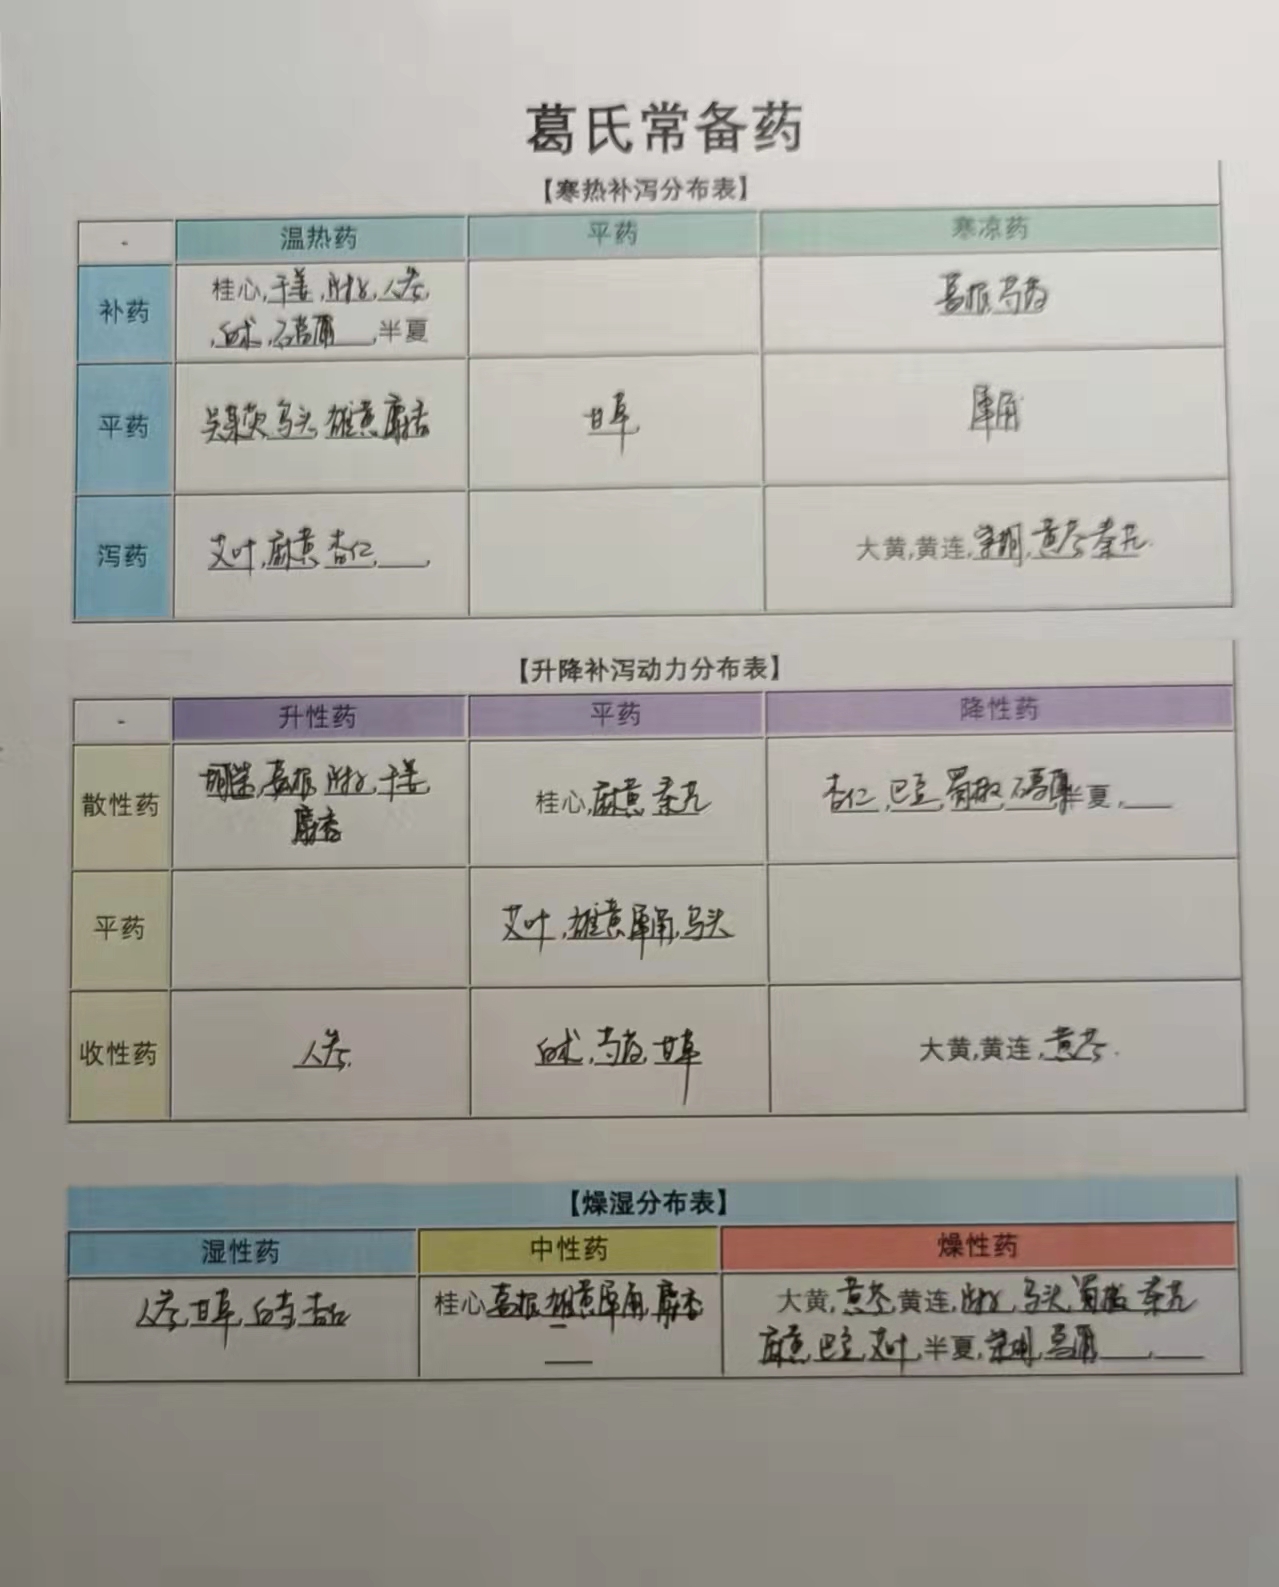 葛氏常备药
【寒热补泻分布表】
- 温热药 平药 寒凉药
补药 桂心,干姜,附子,人参, 葛根,芍药
,白术, ,半夏
平药 吴茱萸,乌头,雄黄,麝香 甘草 犀角
泻药 艾叶,麻黄,杏仁, , 大黄,黄连,柴胡,黄芩,秦艽.
【升降补泻动力分布表】
- 升性药 平药 降性药
散性药 葛根,附子,干姜 桂心,麻黄,秦艽 杏仁,巴豆,蜀椒, 半夏,
麝香
平药 艾叶,雄黄,犀角,乌头
收性药 人参. 白术,芍药,甘草 大黄,黄连,黄芩.
【燥湿分布表】
湿性药 中性药 燥性药
人参,甘草, 杏仁 桂心,葛根,雄黄,犀角,麝香 大黄,黄芩,黄连,附子,乌头,蜀椒,秦艽
麻黄,巴豆,艾叶,半夏,柴胡,